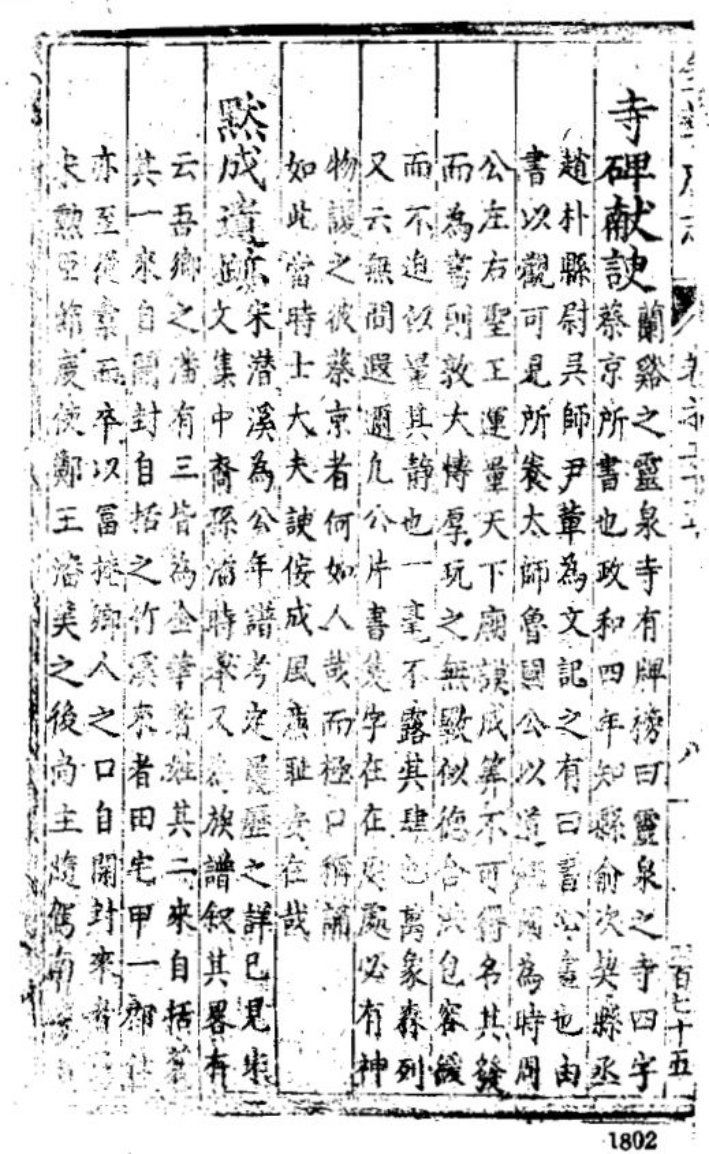 寺碑献諛
蘭谿之靈泉寺有牌榜曰靈泉之寺四字
蔡京所書也政和四年知縣俞次契縣丞
趙朴縣尉吳師尹輩為文記之有曰書心畫也由
書以觀可見所養太師魯國公以道 國為時周
公左右聖王運量天下廟謨成筭不可得名其發
而為書則敦大慱厚玩之無斁似德合 包容緩
而不迫似量其静也一毫不露其肆也萬象森列
又云無問遐邇凡公片書隻字在在處處必有神
物護之彼蔡京者何如人哉而極口稱誦
如此當時士大夫諛佞成風廉耻安在哉
默成遺跡
宋潜溪為公年譜考定履歷之詳已見宋
文集中裔孫 時舉又為族譜叙其畧有
云吾鄉之潘有三皆為金華著姓其二來自括蒼
其一來自開封自括之竹溪來者田宅甲一郡
亦至從橐而卒以富 鄉人之口自開封來者
夫勲 節度使鄭王潘美之後尚主隨駕南
百七十五
1802